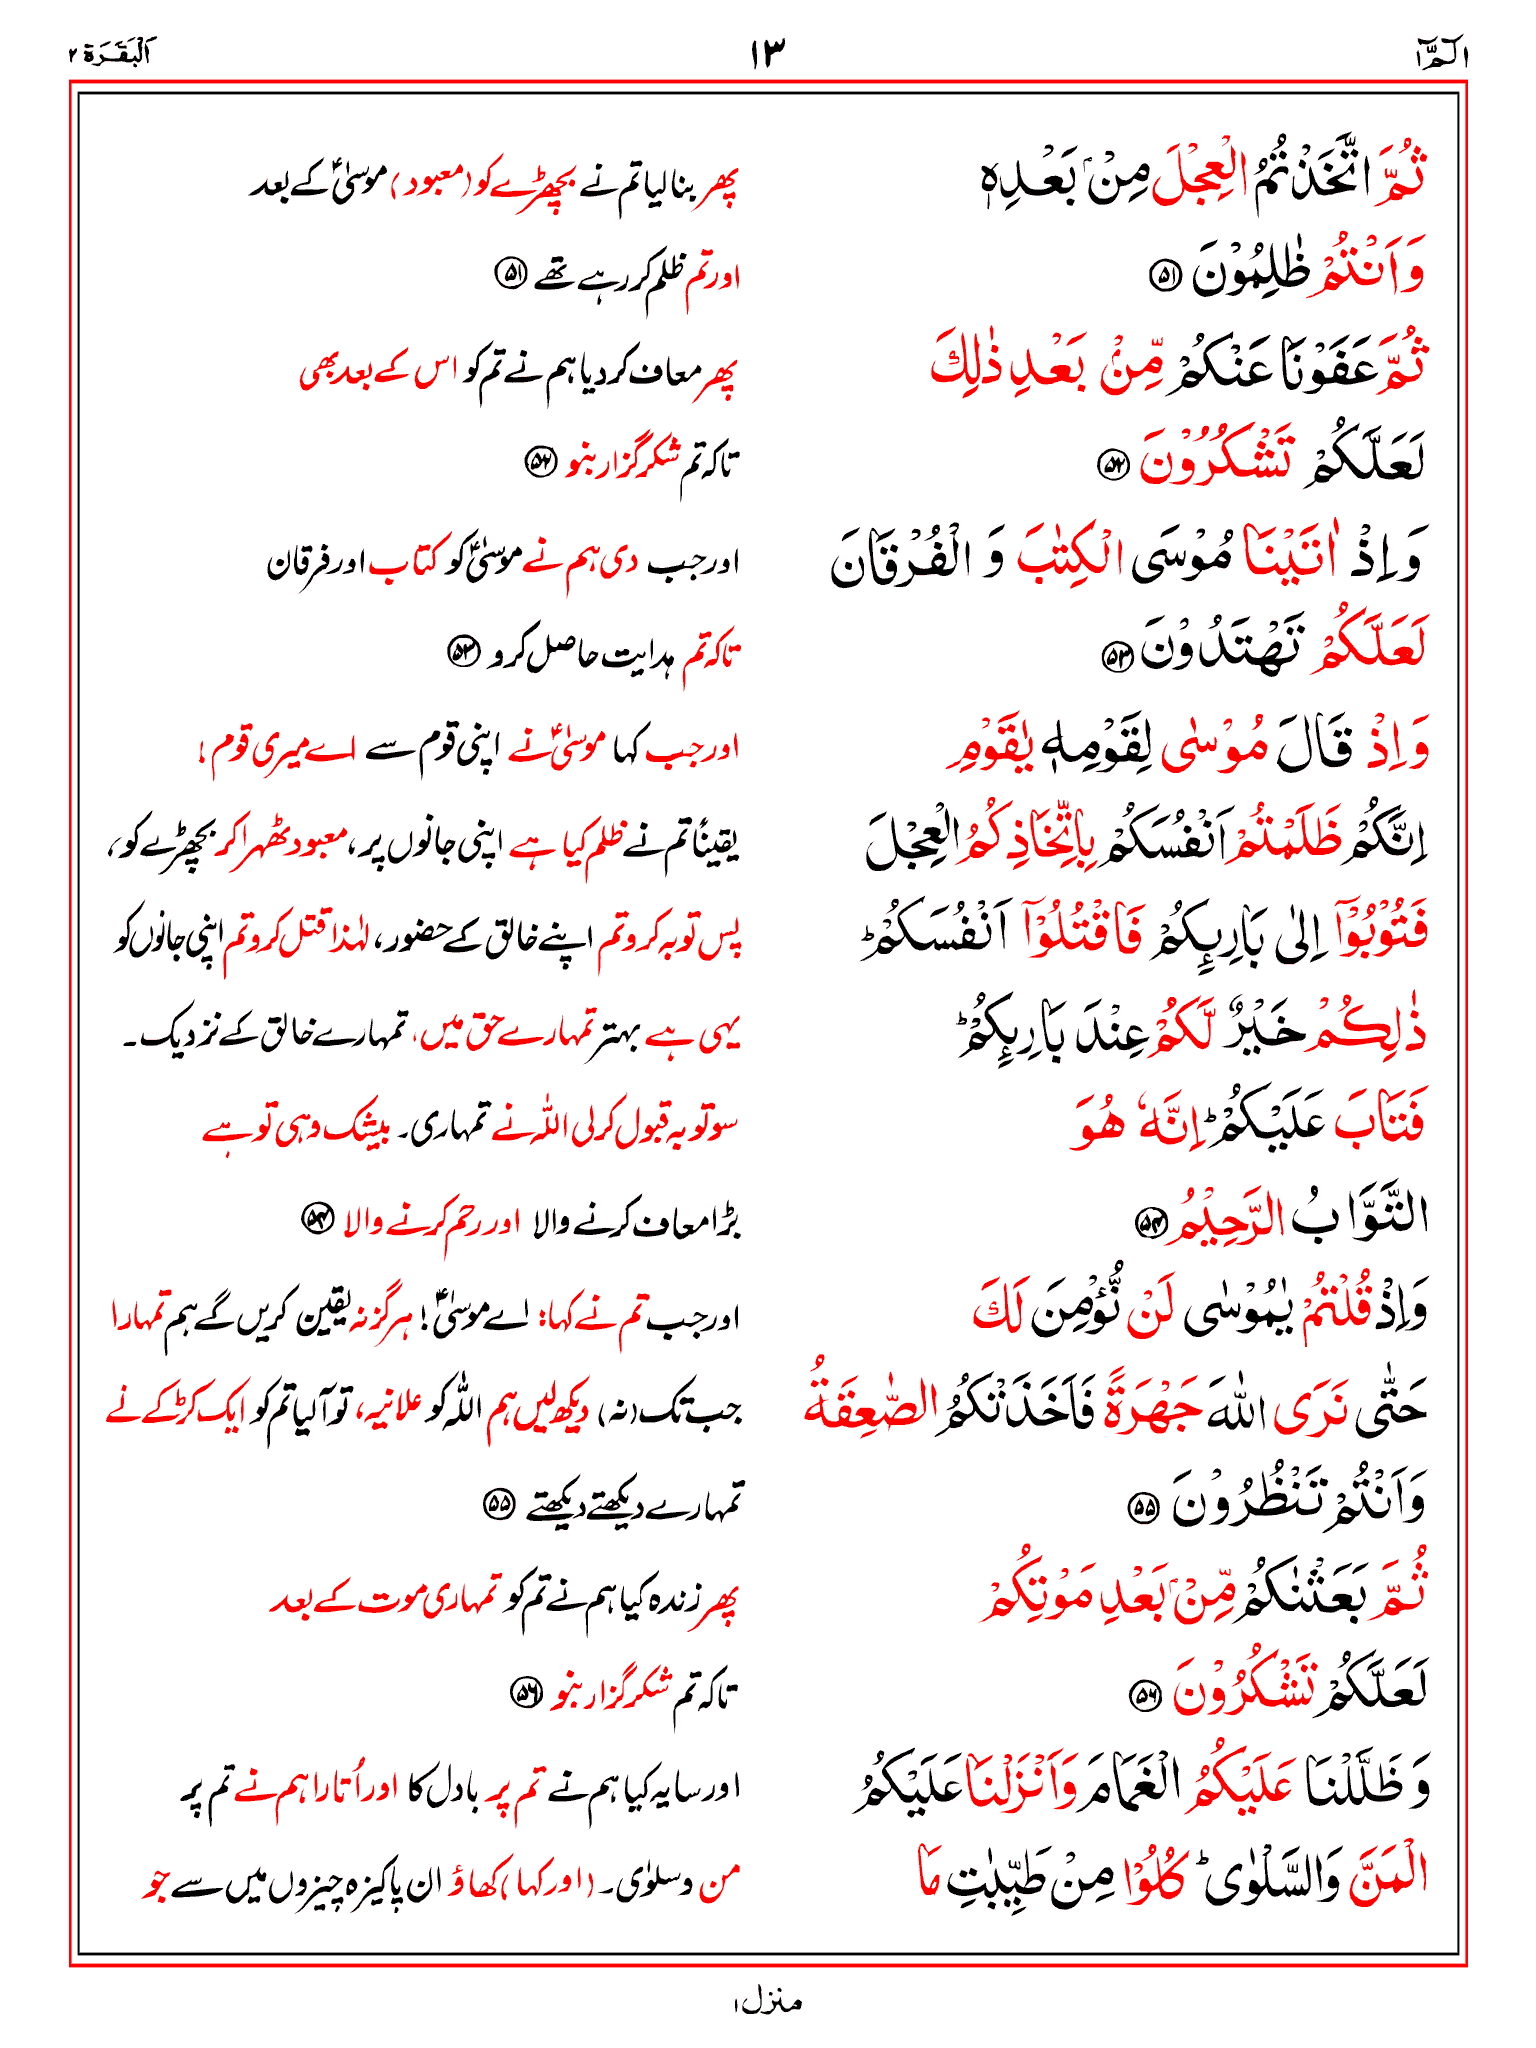 الٓمّٓ ۱ ۱۳ اَلْبَقَرَة ۲
ثُمَّ اتَّخَذْتُمُ الْعِجْلَ مِنْۢ بَعْدِهٖ پھر بنالیا تم نے بچھڑے کو (معبود) موسیٰؑ کے بعد
وَاَنْتُمْ ظٰلِمُوْنَ ۵۱ اور تم ظلم کر رہے تھے ۵۱
ثُمَّ عَفَوْنَا عَنْكُمْ مِّنْۢ بَعْدِ ذٰلِكَ پھر معاف کردیا ہم نے تم کو اس کے بعد بھی
لَعَلَّكُمْ تَشْكُرُوْنَ ۵۲ تاکہ تم شکر گزار بنو ۵۲
وَاِذْ اٰتَيْنَا مُوْسَى الْكِتٰبَ وَ الْفُرْقَانَ اور جب دی ہم نے موسیٰؑ کو کتاب اور فرقان
لَعَلَّكُمْ تَهْتَدُوْنَ ۵۳ تاکہ تم ہدایت حاصل کرو ۵۳
وَاِذْ قَالَ مُوْسٰى لِقَوْمِهٖ يٰقَوْمِ اور جب کہا موسیٰؑ نے اپنی قوم سے اے میری قوم!
اِنَّكُمْ ظَلَمْتُمْ اَنْفُسَكُمْ بِاتِّخَاذِكُمُ الْعِجْلَ یقیناً تم نے ظلم کیا ہے اپنی جانوں پر، معبود ٹھہرا کر بچھڑے کو،
فَتُوْبُوْٓا اِلٰى بَارِىِٕكُمْ فَاقْتُلُوْٓا اَنْفُسَكُمْ ؕ پس توبہ کرو تم اپنے خالق کے حضور، لہٰذا قتل کرو تم اپنی جانوں کو
ذٰلِكُمْ خَيْرٌ لَّكُمْ عِنْدَ بَارِىِٕكُمْ ؕ یہی ہے بہتر تمہارے حق میں، تمہارے خالق کے نزدیک۔
فَتَابَ عَلَيْكُمْ ؕ اِنَّهٗ هُوَ سو توبہ قبول کرلی اللہ نے تمہاری۔ بیشک وہی تو ہے
التَّوَّابُ الرَّحِيْمُ ۵۴ بڑا معاف کرنے والا اور رحم کرنے والا ۵۴
وَاِذْ قُلْتُمْ يٰمُوْسٰى لَنْ نُّؤْمِنَ لَكَ اور جب تم نے کہا: اے موسیٰؑ! ہرگز نہ یقین کریں گے ہم تمہارا
حَتّٰى نَرَى اللّٰهَ جَهْرَةً فَاَخَذَتْكُمُ الصّٰعِقَةُ جب تک (نہ) دیکھ لیں ہم اللہ کو علانیہ، تو آ لیا تم کو ایک کڑکے نے
وَاَنْتُمْ تَنْظُرُوْنَ ۵۵ تمہارے دیکھتے دیکھتے ۵۵
ثُمَّ بَعَثْنٰكُمْ مِّنْۢ بَعْدِ مَوْتِكُمْ پھر زندہ کیا ہم نے تم کو تمہاری موت کے بعد
لَعَلَّكُمْ تَشْكُرُوْنَ ۵۶ تاکہ تم شکر گزار بنو ۵۶
وَظَلَّلْنَا عَلَيْكُمُ الْغَمَامَ وَاَنْزَلْنَا عَلَيْكُمُ اور سایہ کیا ہم نے تم پر بادل کا اور اُتارا ہم نے تم پر
الْمَنَّ وَالسَّلْوٰى ؕ كُلُوْا مِنْ طَيِّبٰتِ مَا من و سلوٰی۔ (اور کہا) کھاؤ ان پاکیزہ چیزوں میں سے جو
منزل ۱